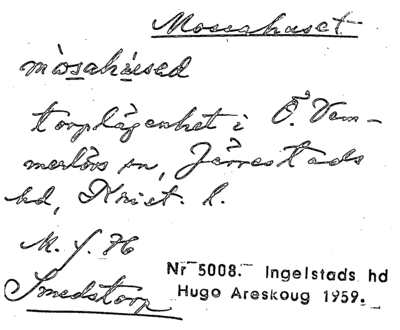 Mosahuset
mòsahúsed
torplägenhet i Ö. Vem-
merlövs sn, Järrestads
hd, Krist. l.
M. J. H
Smedstorp
Nr 5008. Ingelstads hd
Hugo Areskoug 1959.